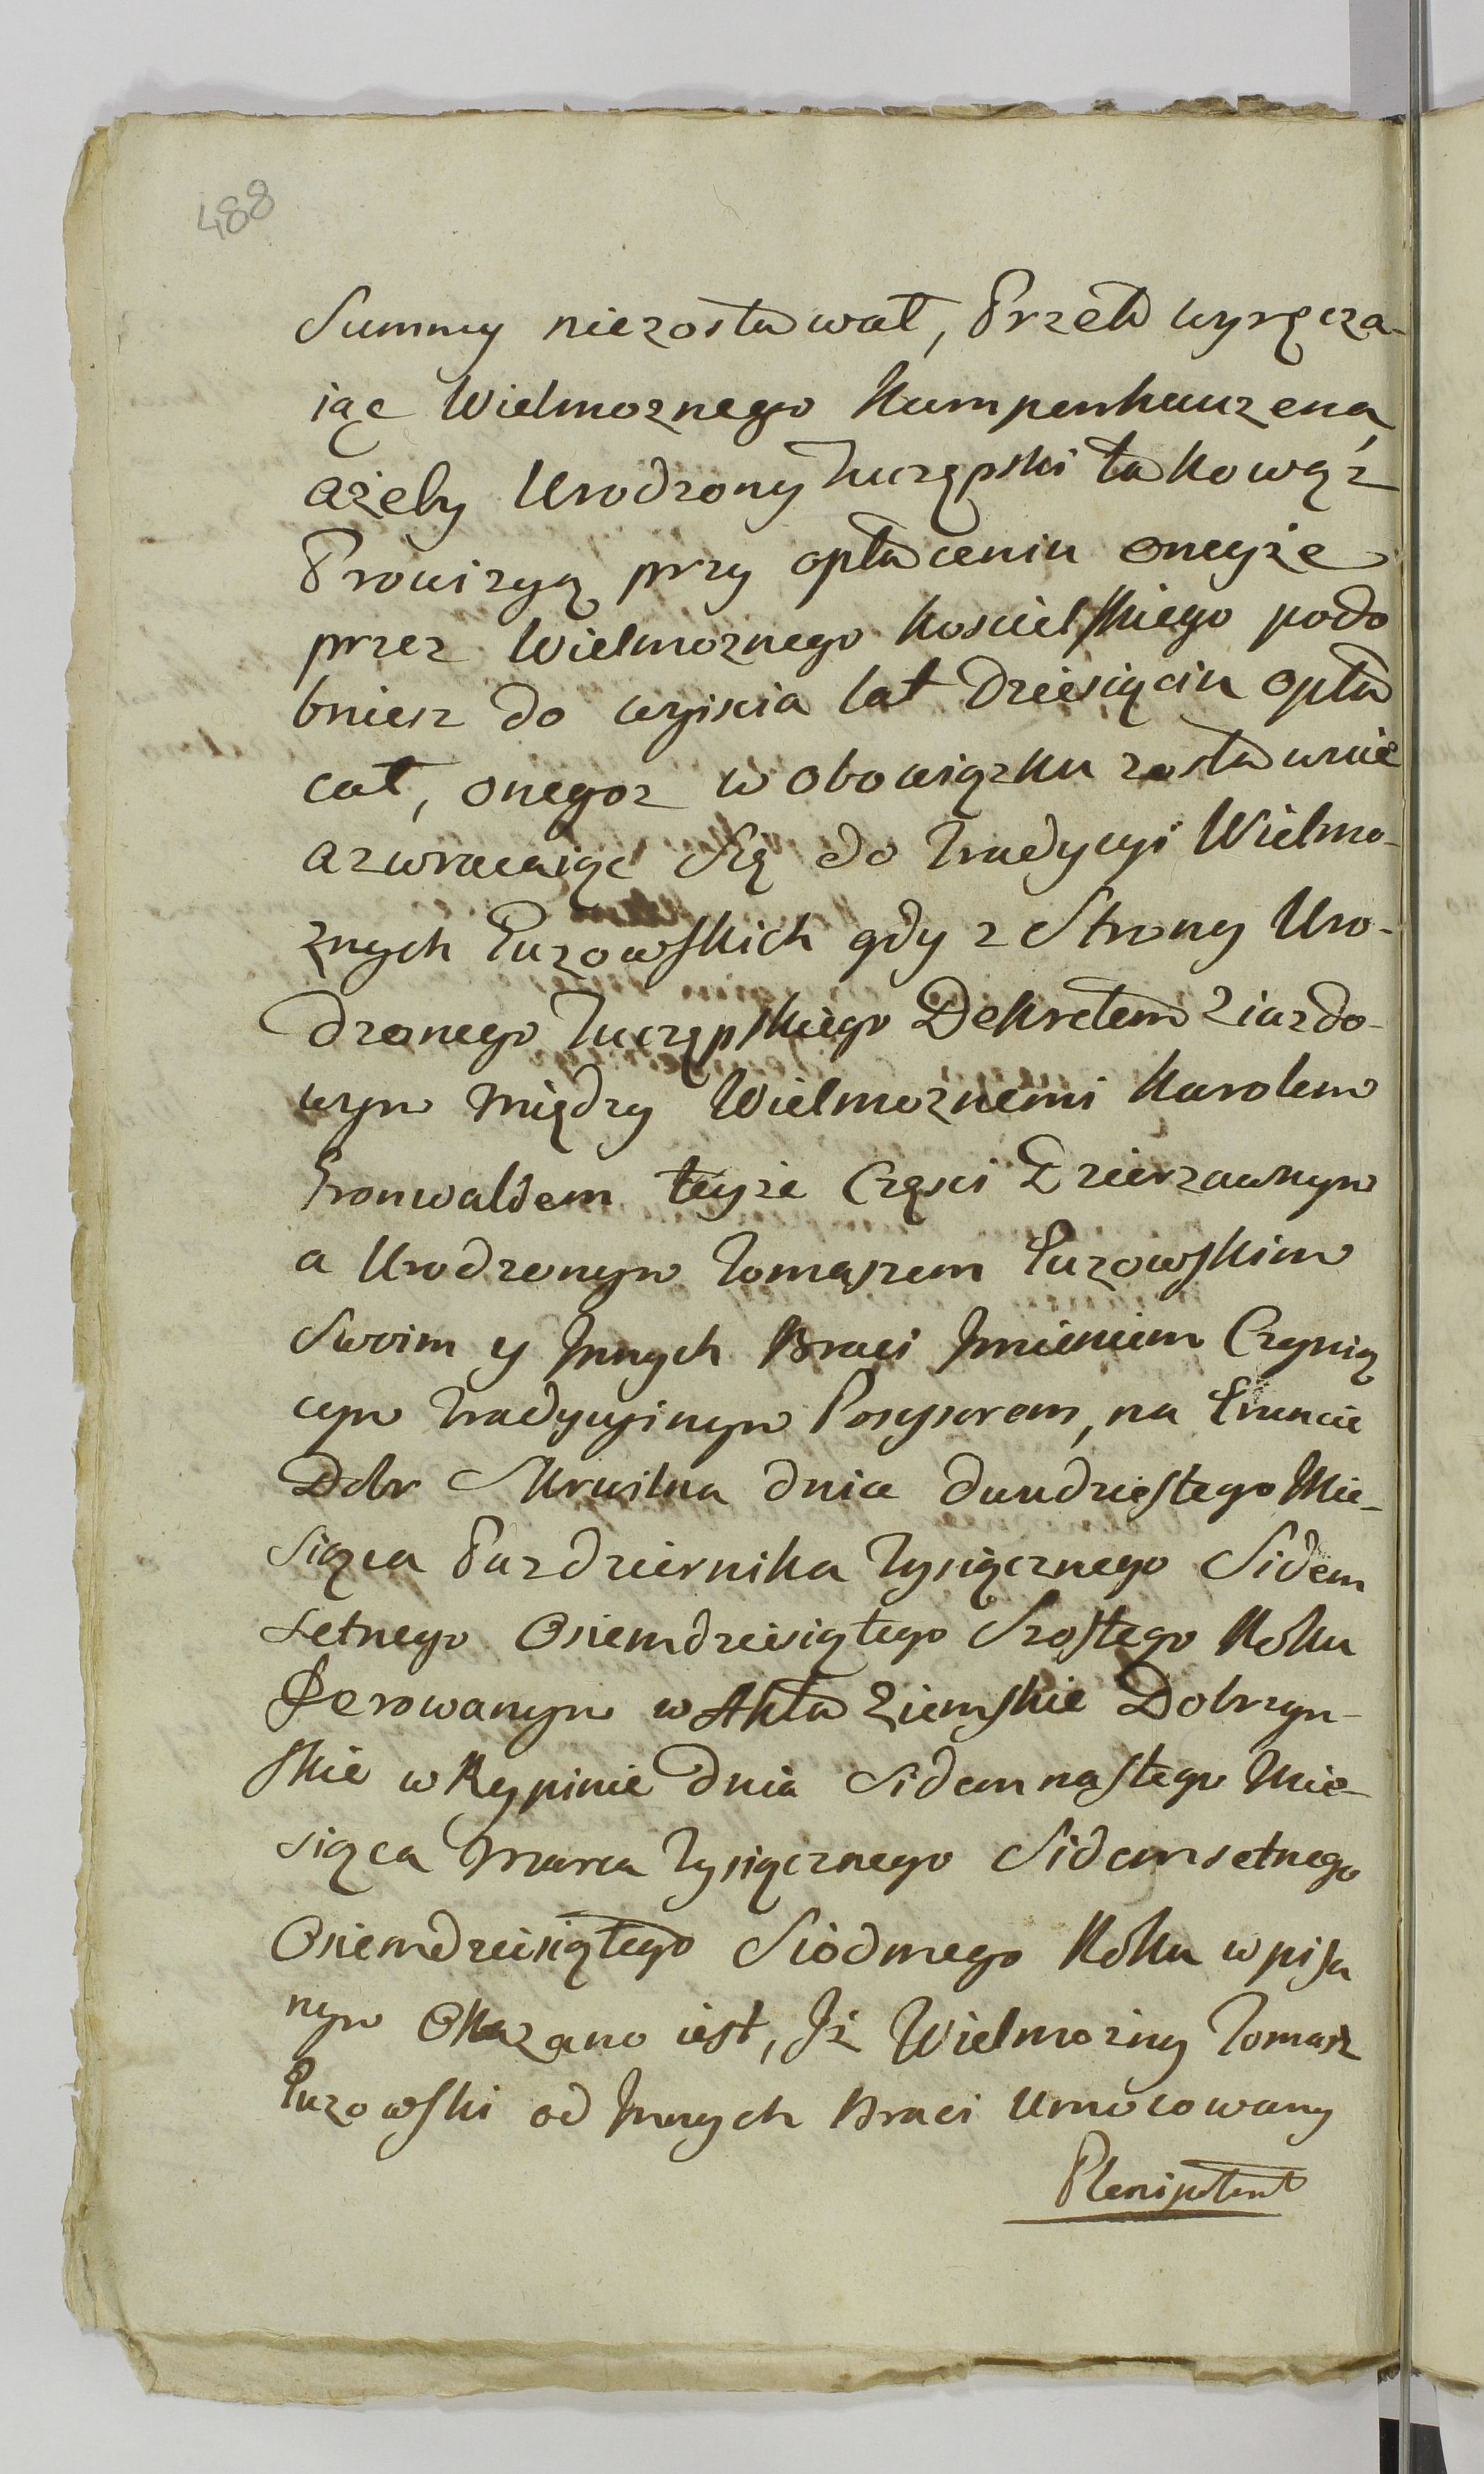 488
Summy niezostawał, Przeto wyręcza-
iąc Wielmoznego Kampenhauzena,
ażeby Urodzony Tuczępski takowąż
Prowizyą przy opłaceniu oneyże
przez Wielmoznego Koscielskiego podo
bniesz do wyiscia lat Dziesięciu opła
cał, onegoz w obowiązku zostawuie
azwracaiąc Się do Tradycyi Wielmo-
znych Łuzowskich gdy z Strony Uro-
dzonego Tuczępskiego Dekretem Ziazdo-
wym między Wielmoznemi Karolem
Gronwaldem teyże Częsci Dzierzawnym
a Urodzonym Tomaszem Łuzowskim
Swoim y Jnnych Braci Jmieniem Czynią
cym Tradycyinym Posysorem, na Gruncie
Dobr Skrwilna dnia dwudziestego Mie-
siąca Pazdziernika Tysiącznego Sidem
setnego Osiemdziesiątego Szostego Roku
Ferowanym w Akta Ziemskie Dobrzyn-
skie w Rypinie dnia Sidemnastego Mie-
siąca Marca Tysiącznego Sidemsetnego
Osiemdziesiątego Siódmego Roku wpisa
nym Okazano iest, Jż Wielmożny Tomasz
Łuzowski od Jnnych Braci Umocowany
Plenipotent